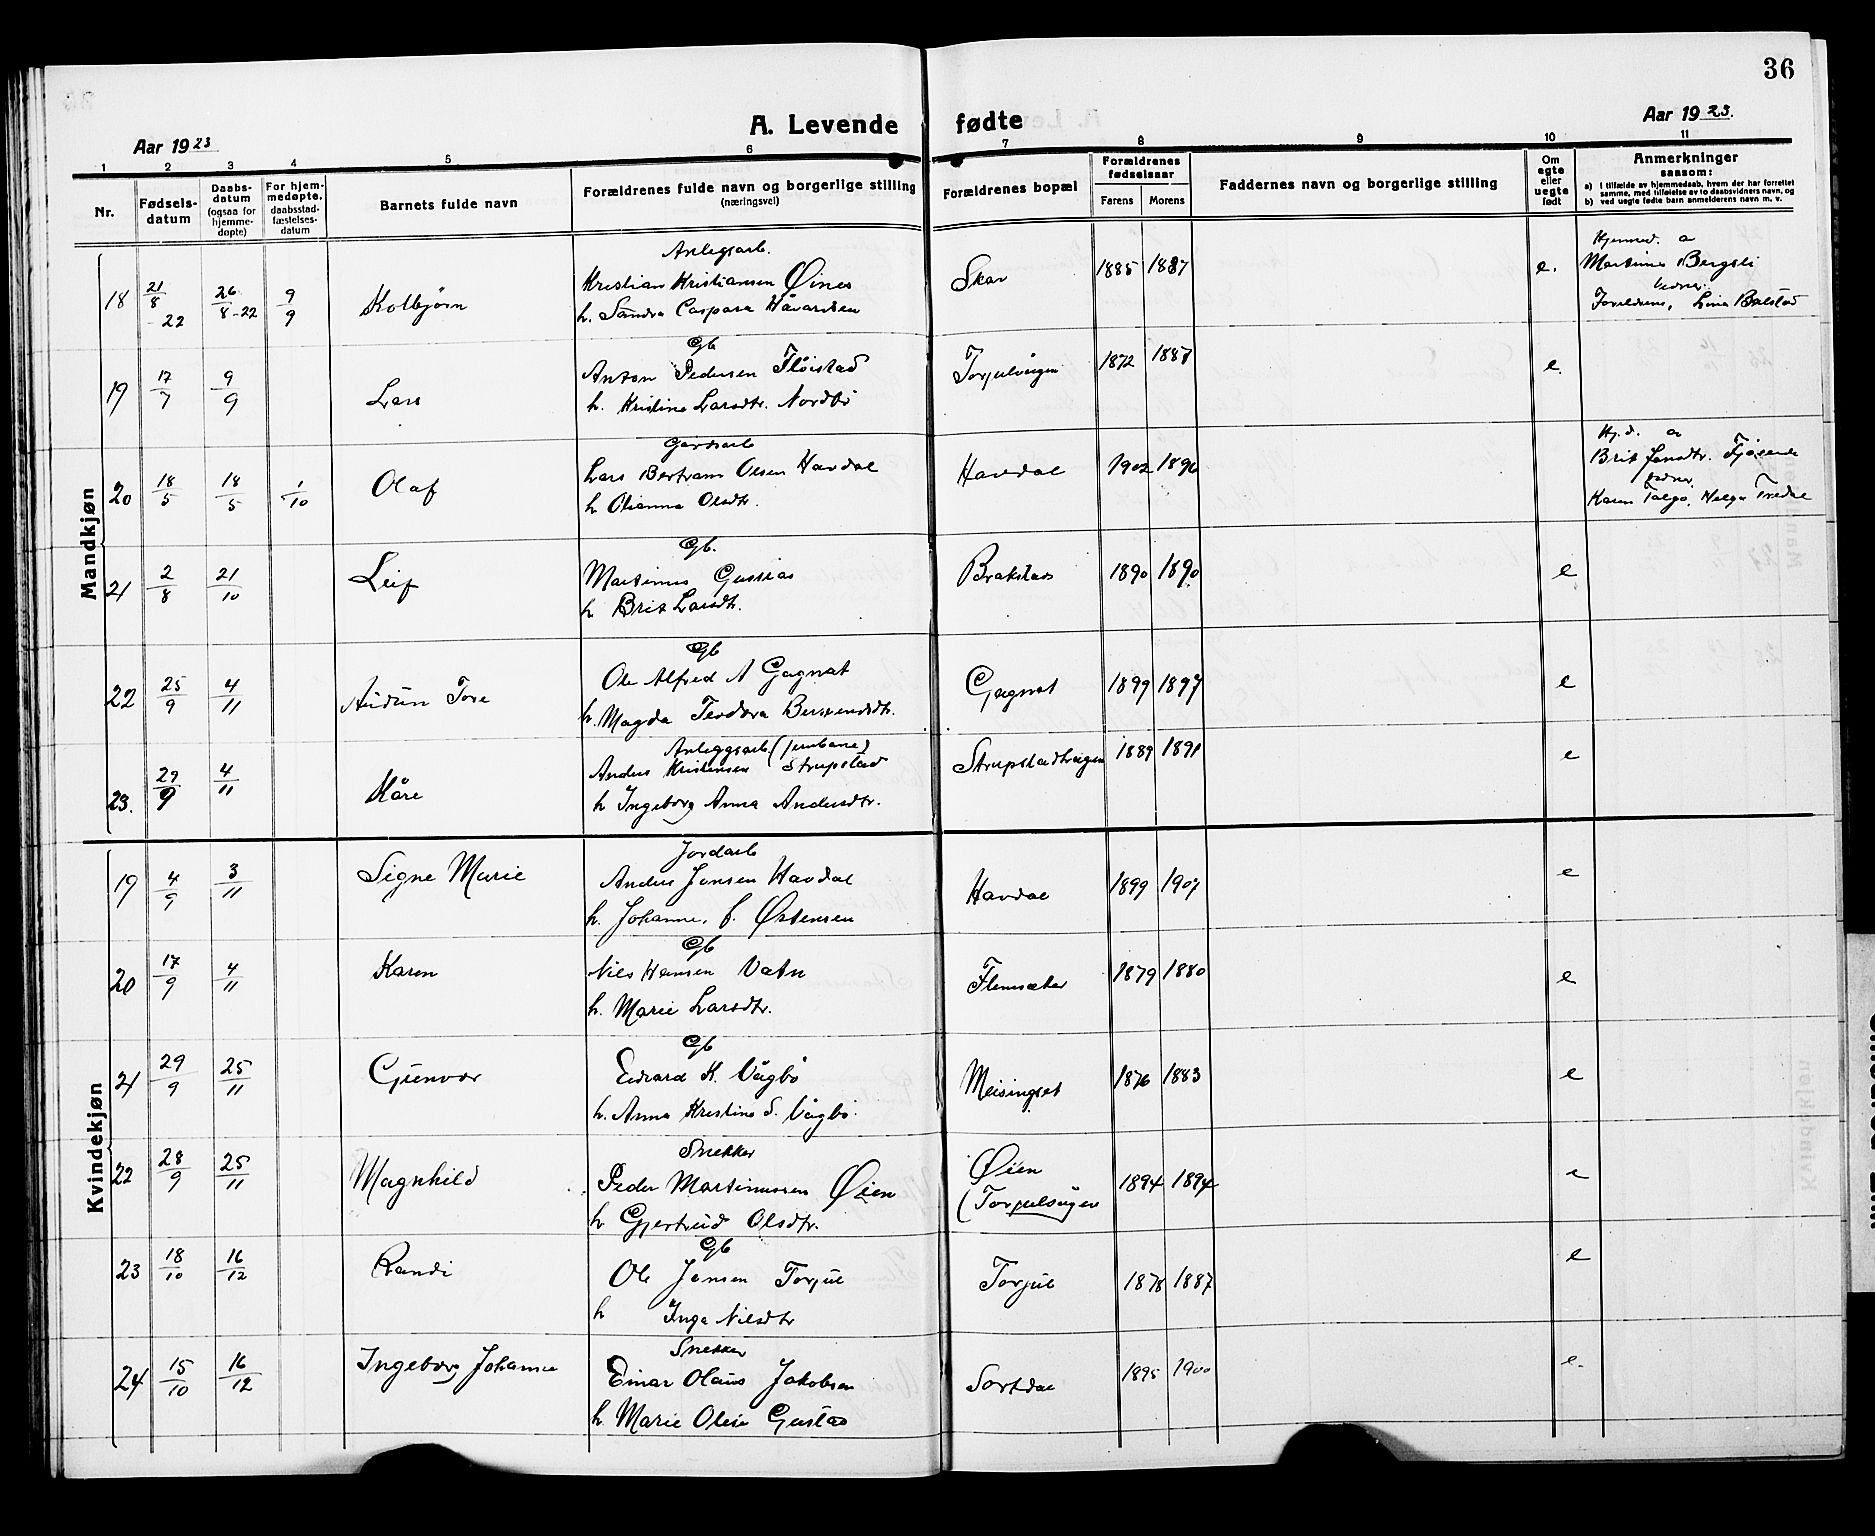 36
A. Levende fødte
Aar 1923
Aar 1923.
1 2 3 4 5 6 7 8 9 10 11
Nr.
Fødsels-
datum
Daabs-
datum
(ogsaa for
hjemme-
døpte)
For hjem-
medøpte,
daabsstad-
fæstelses-
datum
Barnets fulde navn
Forældrenes fulde navn og borgerlige stilling
(næringsvei)
Forældrenes bopæl
Forældrenes
fødselsaar
Farens Morens
Faddernes navn og borgerlige stilling
Om
ægte
eller
uegte
født
Anmerkninger
saasom:
a) I tilfælde av hjemmedaab, hvem der har forrettet
samme, med tilføielse av to daabsvidners navn, og
b) ved uegte fødte barn anmelderens navn m. v.
Mandkjøn
18 21/8 -22 26/8 -22 9/9 Kolbjørn
Anlegsarb.
Kristian Kristiansen Øines
h. Sandra Caspara Håvardsen
Skar 1885 1887 e.
Hjemmed. a
Martinus Bergsli
vidner
Foreldrene, Lina Bolstad
19 17/7 9/9 Lars
Gb
Anton Pedersen Fløistad
h. Kristine Larsdtr. Nordbø
Torjulvågen 1872 1887 e.
20 18/5 18/5 1/10 Olaf
Gardsarb
Lars Bertram Olsen Havdal
h Olianna Olsdtr.
Havdal 1902 1896
Hj.d. a
Brit Jonsdtr.
vidner
Karen Talgø, Helga
21 2/8 21/10 Leif
Gb.
Martinus Gussiås
h Brit Larsdtr.
Brakstad 1890 1890 e
22 25/9 4/11 Audun Tore
Gb
Ole Alfred A Gagnat
h. Magda Teodora Berntsendtr.
Gagnat 1899 1897 e
23. 29/9 4/11 Kåre
Anleggsarb. (jernbane)
Anders Kristensen Strupstad
h Ingeborg Anna Andersdtr.
Strupstadvågen 1889 1891 e
Kvindekjøn
19 4/9 3/11 Signe Marie
Jordarb
Anders Jonsen Havdal
h. Johanne, f. Østensen
Havdal 1899 1907 e
20 17/9 4/11 Karen
Gb
Nils Hansen Vatn
h. Marie Larsdtr.
Flemsæter 1879 1880 e
21 29/9 25/11 Gunvor
Gb
Edvard K. Vågbø
h. Anna Kristine S. Vågbø.
Meisingset 1876 1883 e
22 28/9 25/11 Magnhild
Snekker
Peder Martinussen Øien
h Gjertrud Olsdtr.
Øien
(Torjulvågen 1894 1894 e
23 18/10 16/12 Randi
Gb
Ole Jonsen Torjul
h Inga Nilsdtr
Torjul 1878 1887 e
24 15/10 16/12 Ingeborg Johanne
Snekker
Einar Olaus Jakobsen
h. Marie Olise Gustad
Sortdal 1895 1900 e.